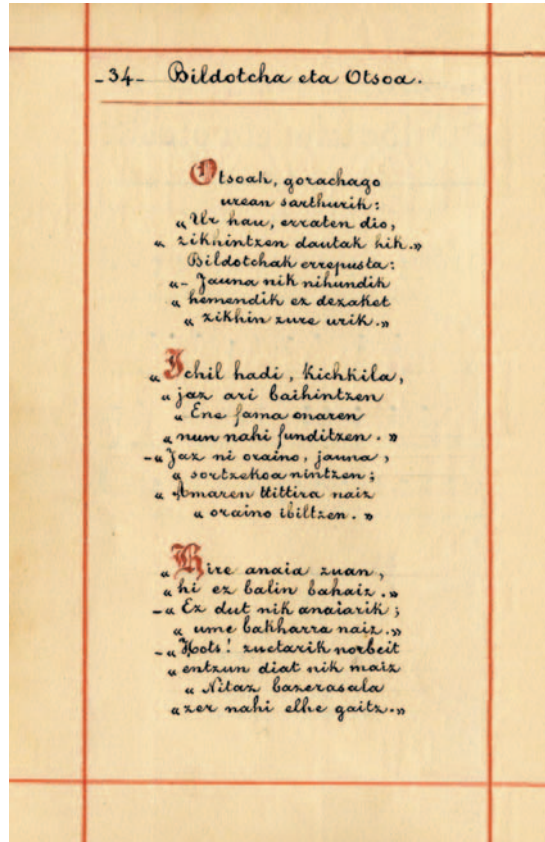 -34- Bildotcha eta Otsoa.
Otsoak, gorachago
urean sarthurik:
« Ur hau, erraten dio,
« zikhintzen dautak hik.»
Bildotchak errepusta:
«- Jauna nik nihundik
« hemendik ez dezaket
« zikhin zure urik.»
« Ichil hadi, kichkila,
« jaz ari baihintzen
« Ene fama onaren
« nun nahi funditzen. »
-« Jaz ni oraino, jauna,
« sortzekoa nintzen;
« Amaren ttittira naiz
« oraino ibiltzen. »
« Hire anaia zuan,
« hi ez balin bahaiz.»
-« Ez dut nik anaiarik;
« ume bakharra naiz.»
-« Hots! zuetarik norbeit
« entzun diat nik maiz
« Nitaz bazerasala
« zer nahi elhe gaitz.»